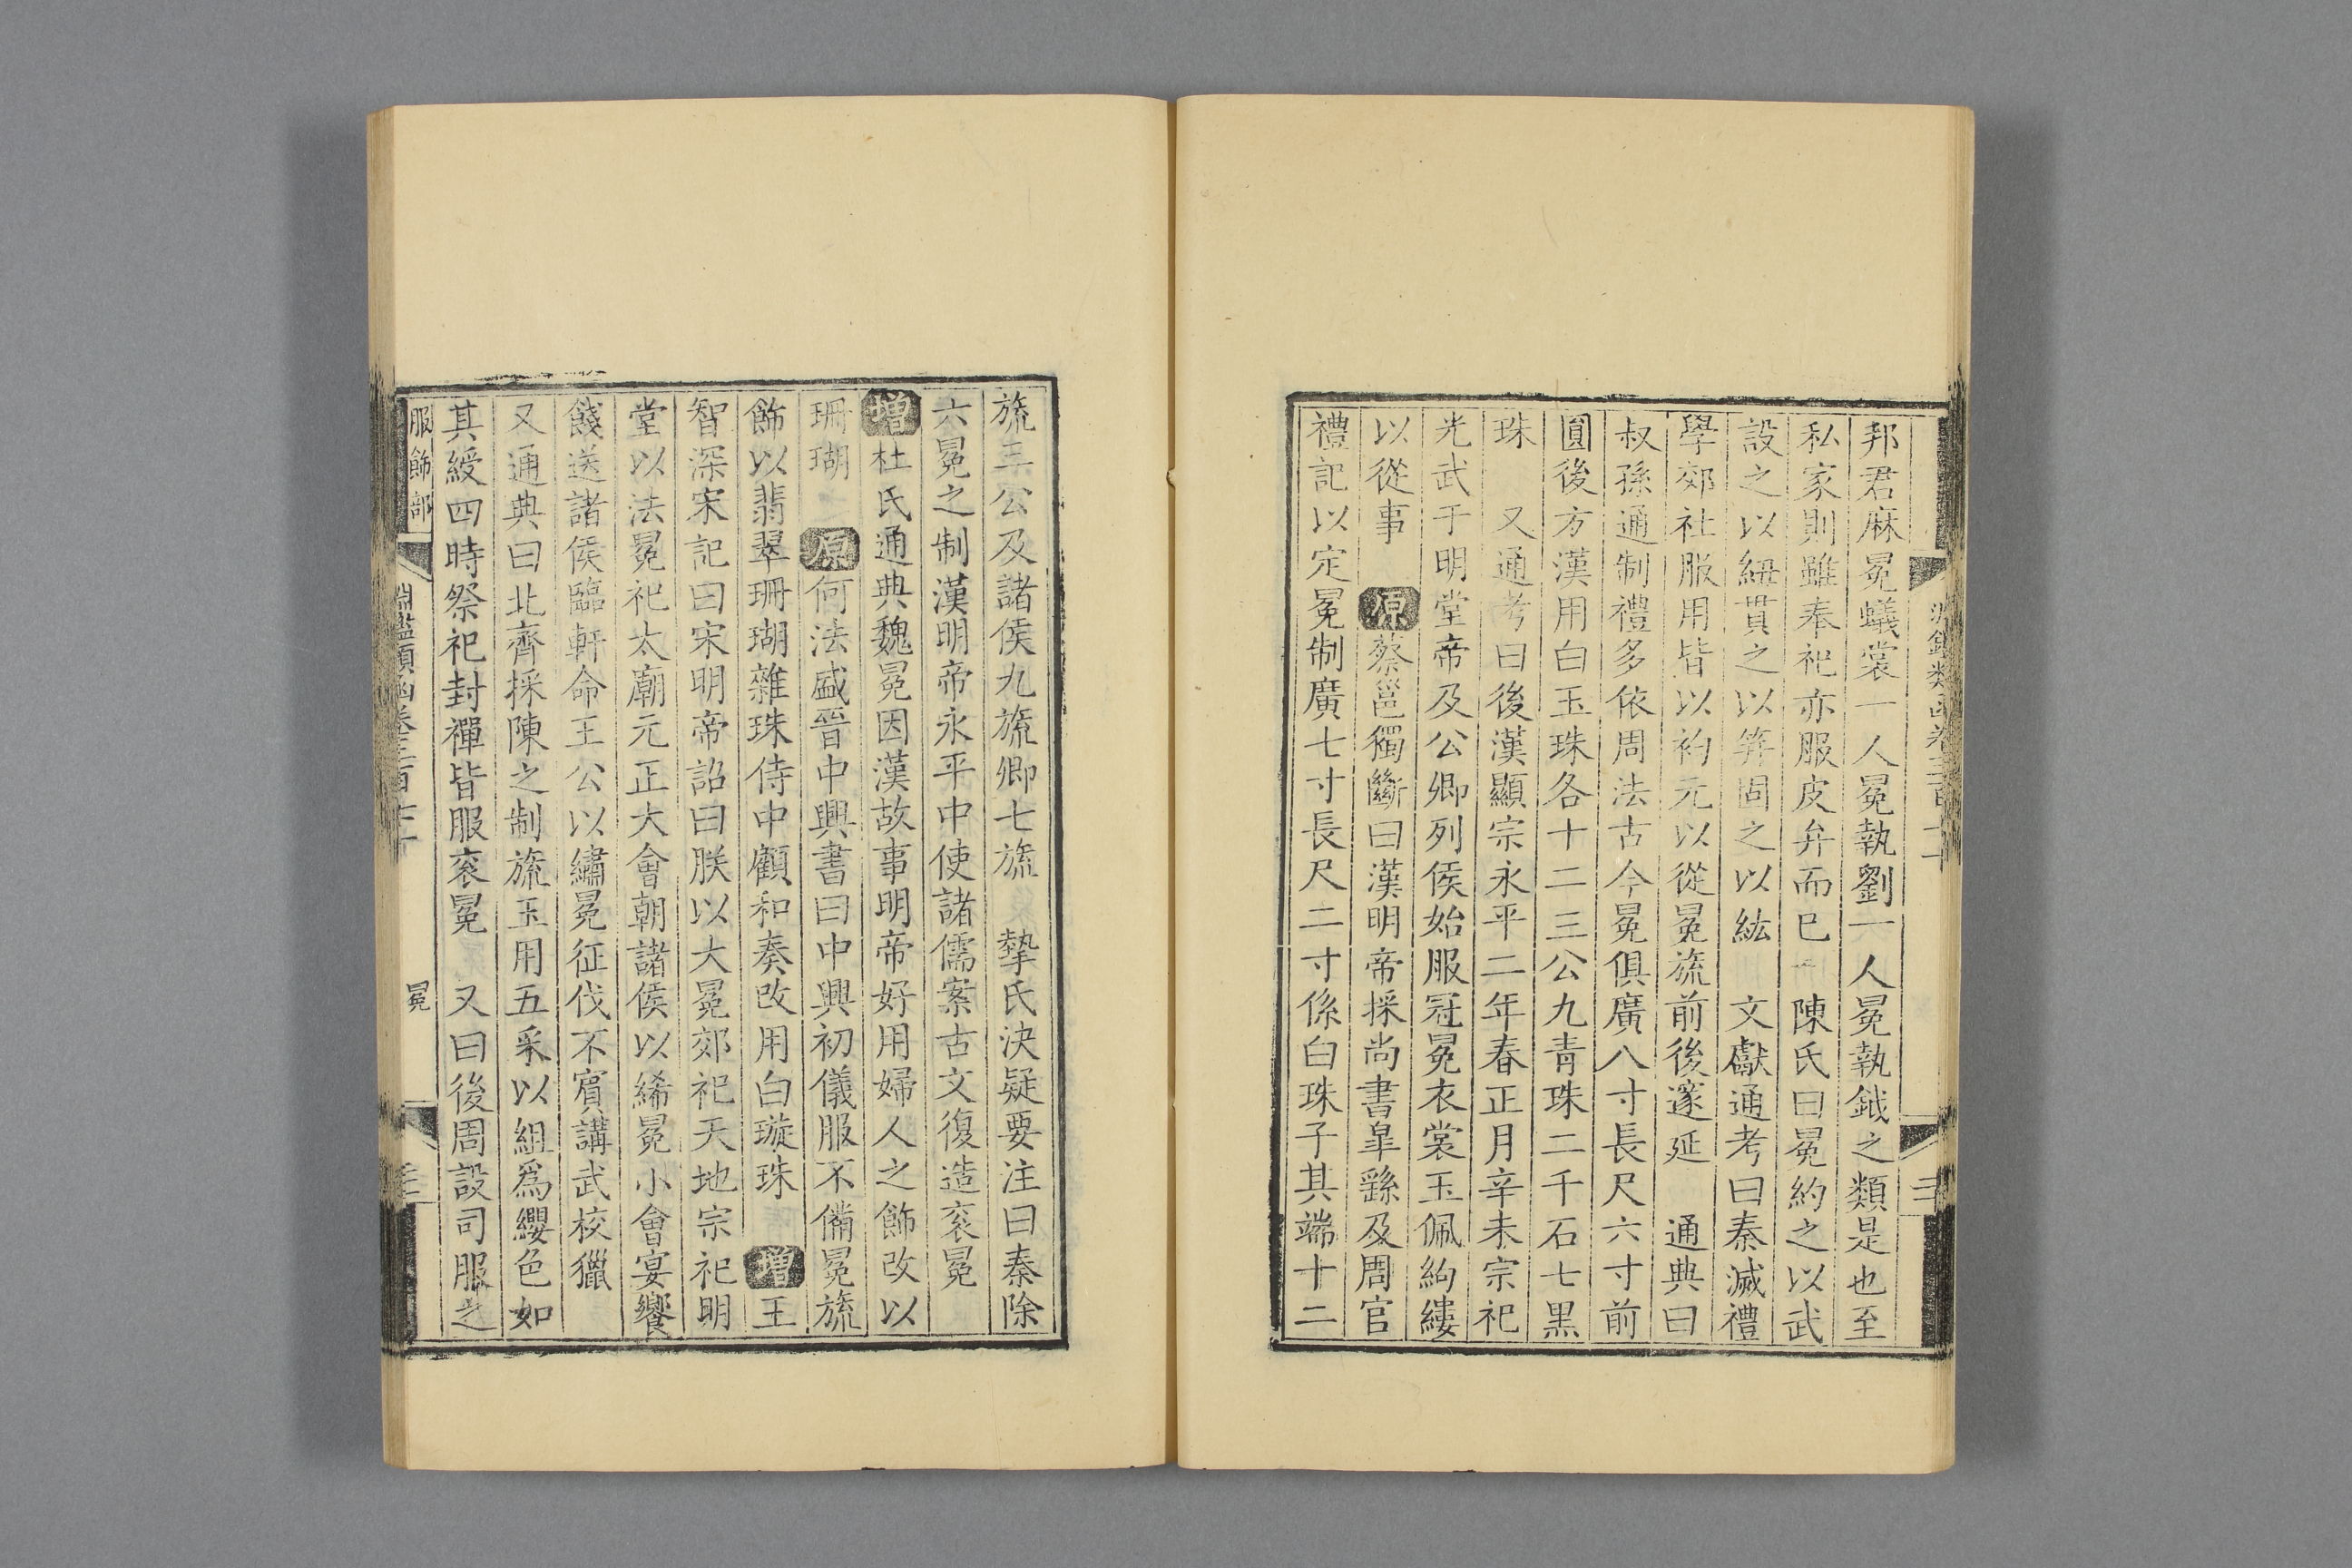 邦君麻冕蟻裳一人冕執劉一人冕執鉞之類是也至
私家則雖奉祀亦服皮弁而已　陳氏曰冕約之以武
設之以紐貫之以笄固之以紘　文獻通考曰秦滅禮
學郊社服用皆以袀元以從冕旒前後邃延　通典曰
叔孫通制禮多依周法古今冕俱廣八寸長尺六寸前
圓後方漢用白玉珠各十二三公九青珠二千石七黑
珠　又通考曰後漢顯宗永平二年春正月辛未宗祀
光武于明堂帝及公卿列侯始服冠冕衣裳玉佩絇縷
以從事　原蔡邕獨斷曰漢明帝採尚書皐繇及周官
禮記以定冕制廣七寸長尺二寸係白珠子其端十二
旒三公及諸侯九旒卿七旒　摯氏決疑要注曰秦除
六冕之制漢明帝永平中使諸儒案古文復造衮冕
增杜氏通典魏冕因漢故事明帝好用婦人之飾改以
珊瑚　原何法盛晉中興書曰中興初儀服不備冕旒
飾以翡翠珊瑚雜珠侍中顧和奏改用白璇珠　增王
智深宋記曰宋明帝詔曰朕以大冕郊祀天地宗祀明
堂以法冕祀太廟元正大會朝諸侯以絺冕小會宴饗
餞送諸侯臨軒命王公以繡冕征伐不賓講武校獵
又通典曰北齊採陳之制旒玉用五采以組爲纓色如
其綬四時祭祀封禪皆服衮冕　又曰後周設司服之
服飾部
淵鑑類函卷三百七十
冕